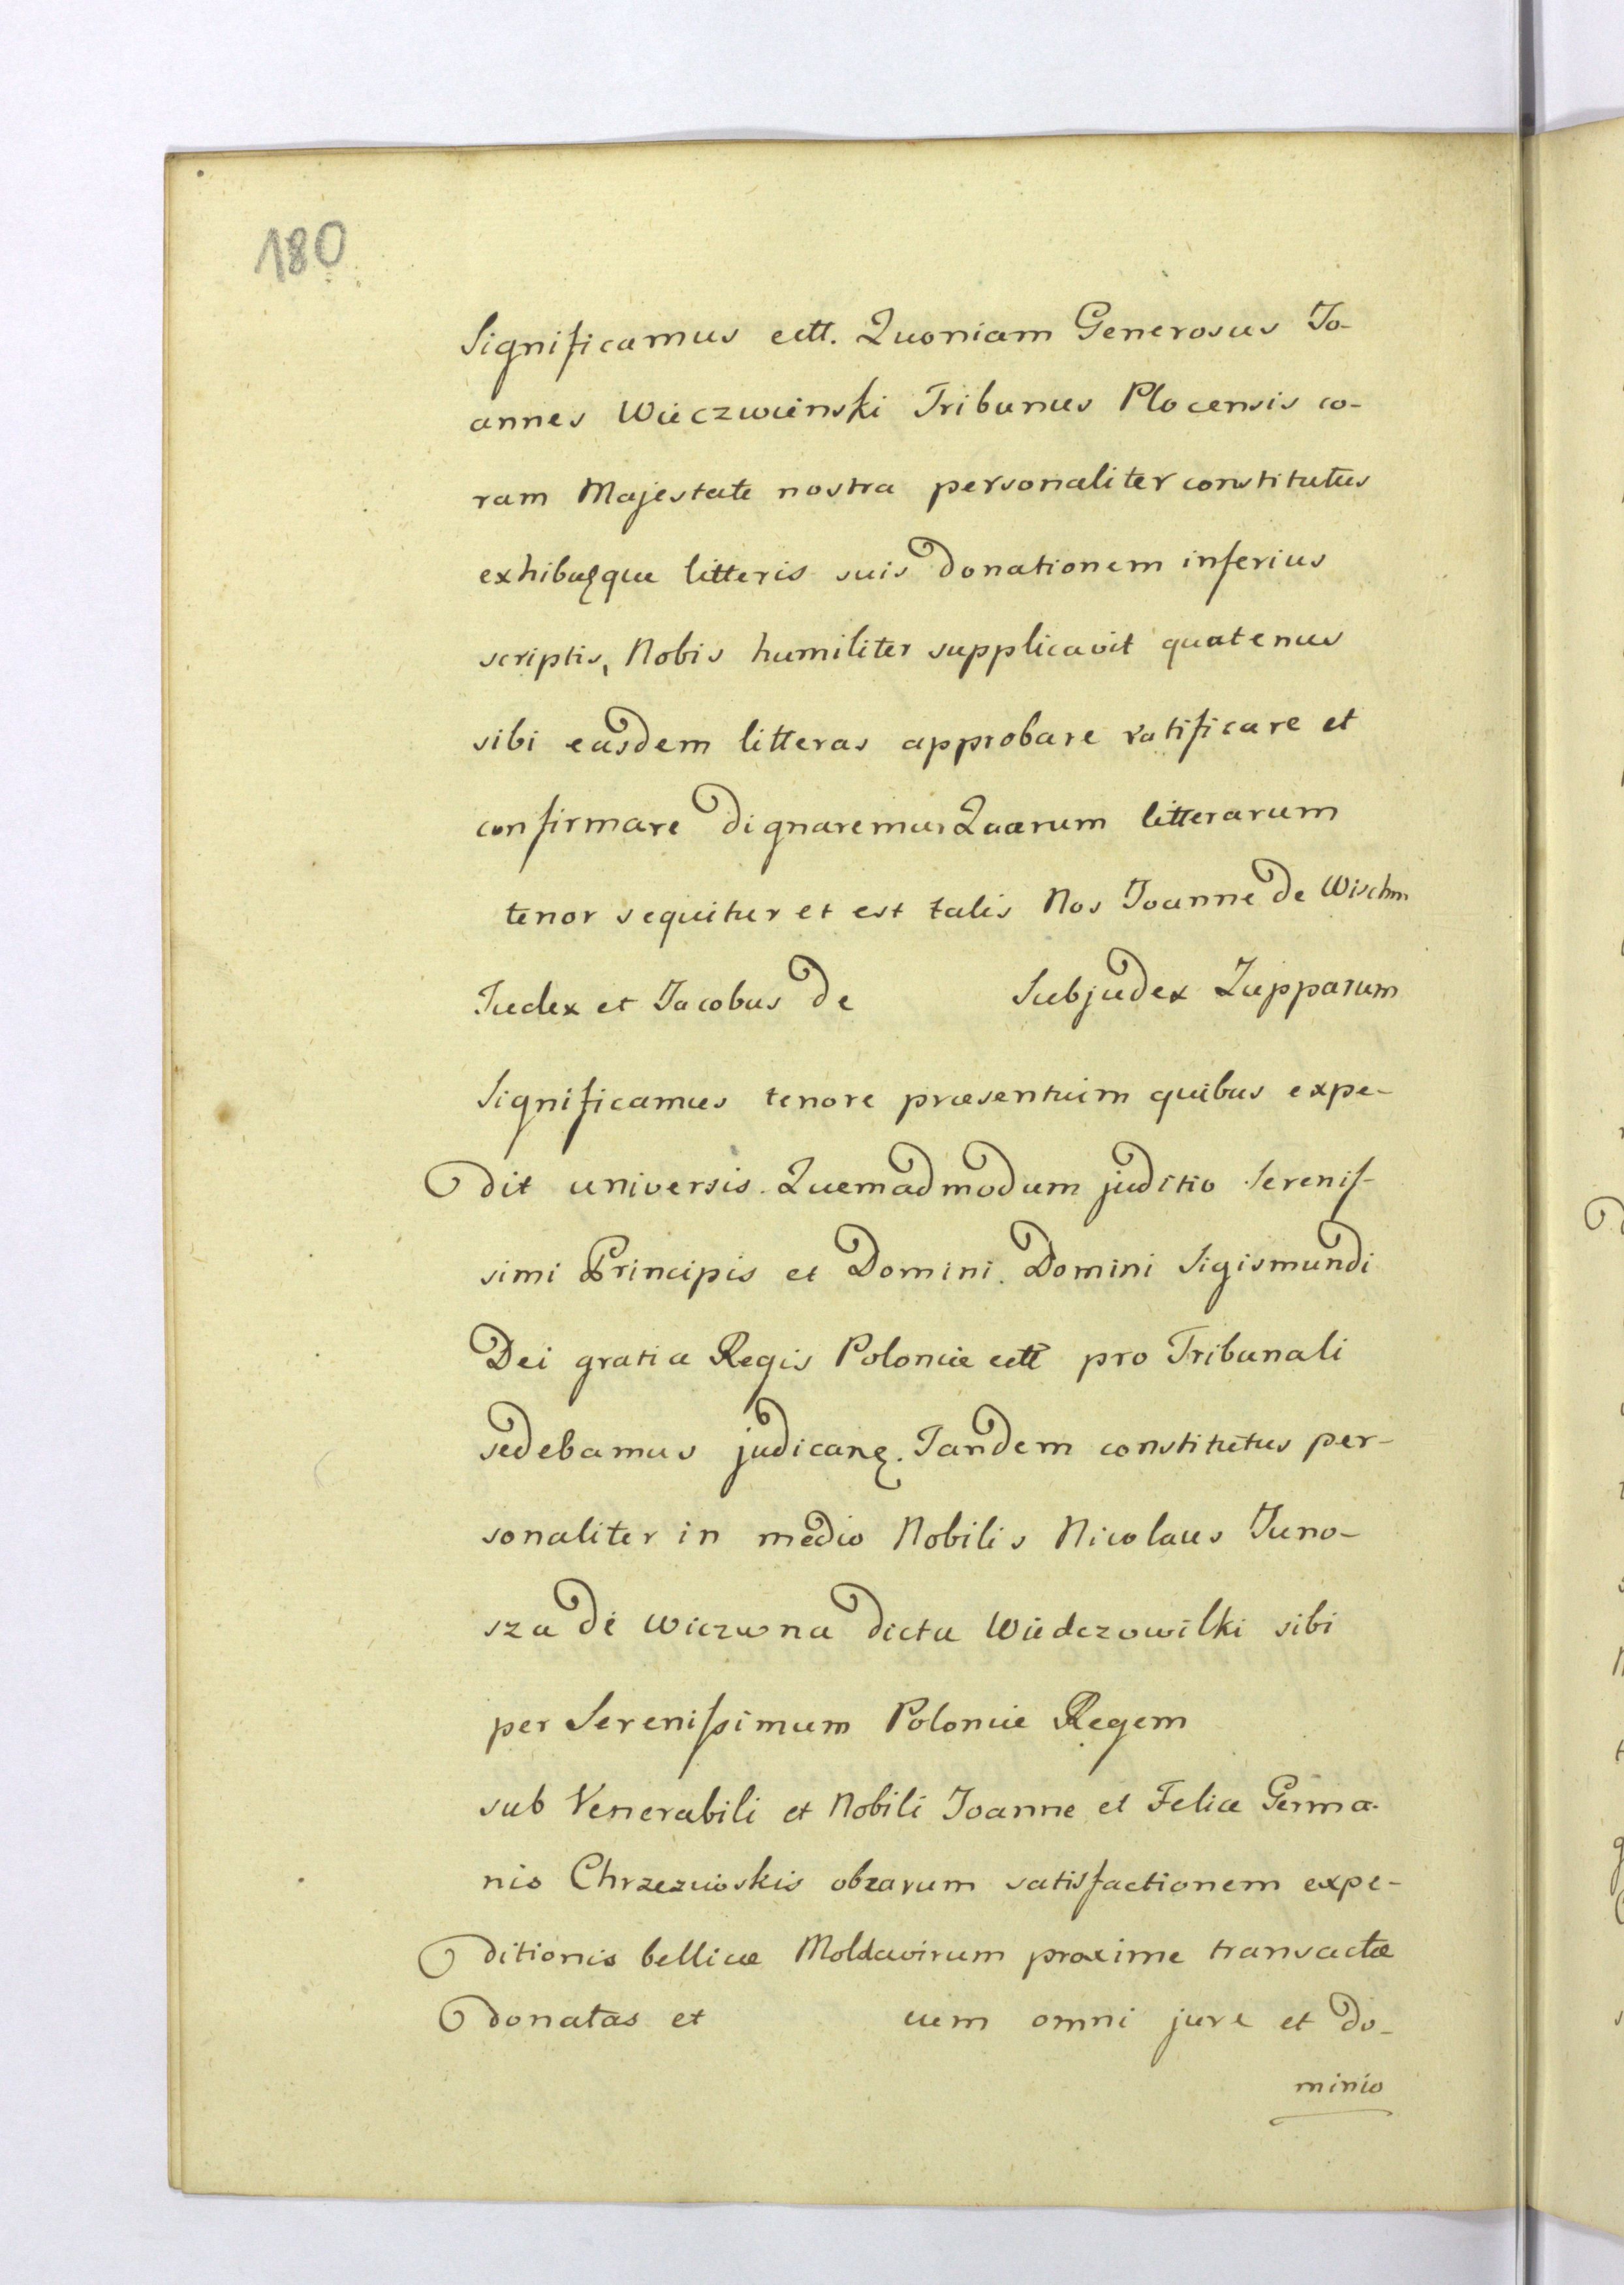 180
Significamus ectt. Quoniam Generosus Jo-
annes Wieczwienski Tribunus Plocensis co-
ram Majestate nostra personaliter constitutus
litteris suis donationem inferius
scriptis, Nobis humiliter supplicavit quatenus
sibi easdem litteras approbare ratificare et
confirmare dignaremur Quarum litterarum
tenor sequitur et est talis Nos Joanne de
Judex et Jacobus de Subjudex Zupparum
Significamus tenore præsentium quibus expe-
dit universis. Quemadmodum juditio Serenis-
simi Principis et Domini. Domini Sigismundi
Dei gratia Regis Poloniæ ectt pro Tribunali
sedebamus Tandem constitutus per-
sonaliter in medio Nobilis Nicolaus Juno-
sza de Wiczwna dicta Wiedczowilki sibi
per Serenissimum Poloniæ Regem
sub Venerabili et Nobili Joanne et Felice Germa-
nis satisfactionem expe-
ditionis bellicæ Moldavirum proxime transactæ
donatas et cum omni jure et do-
minio